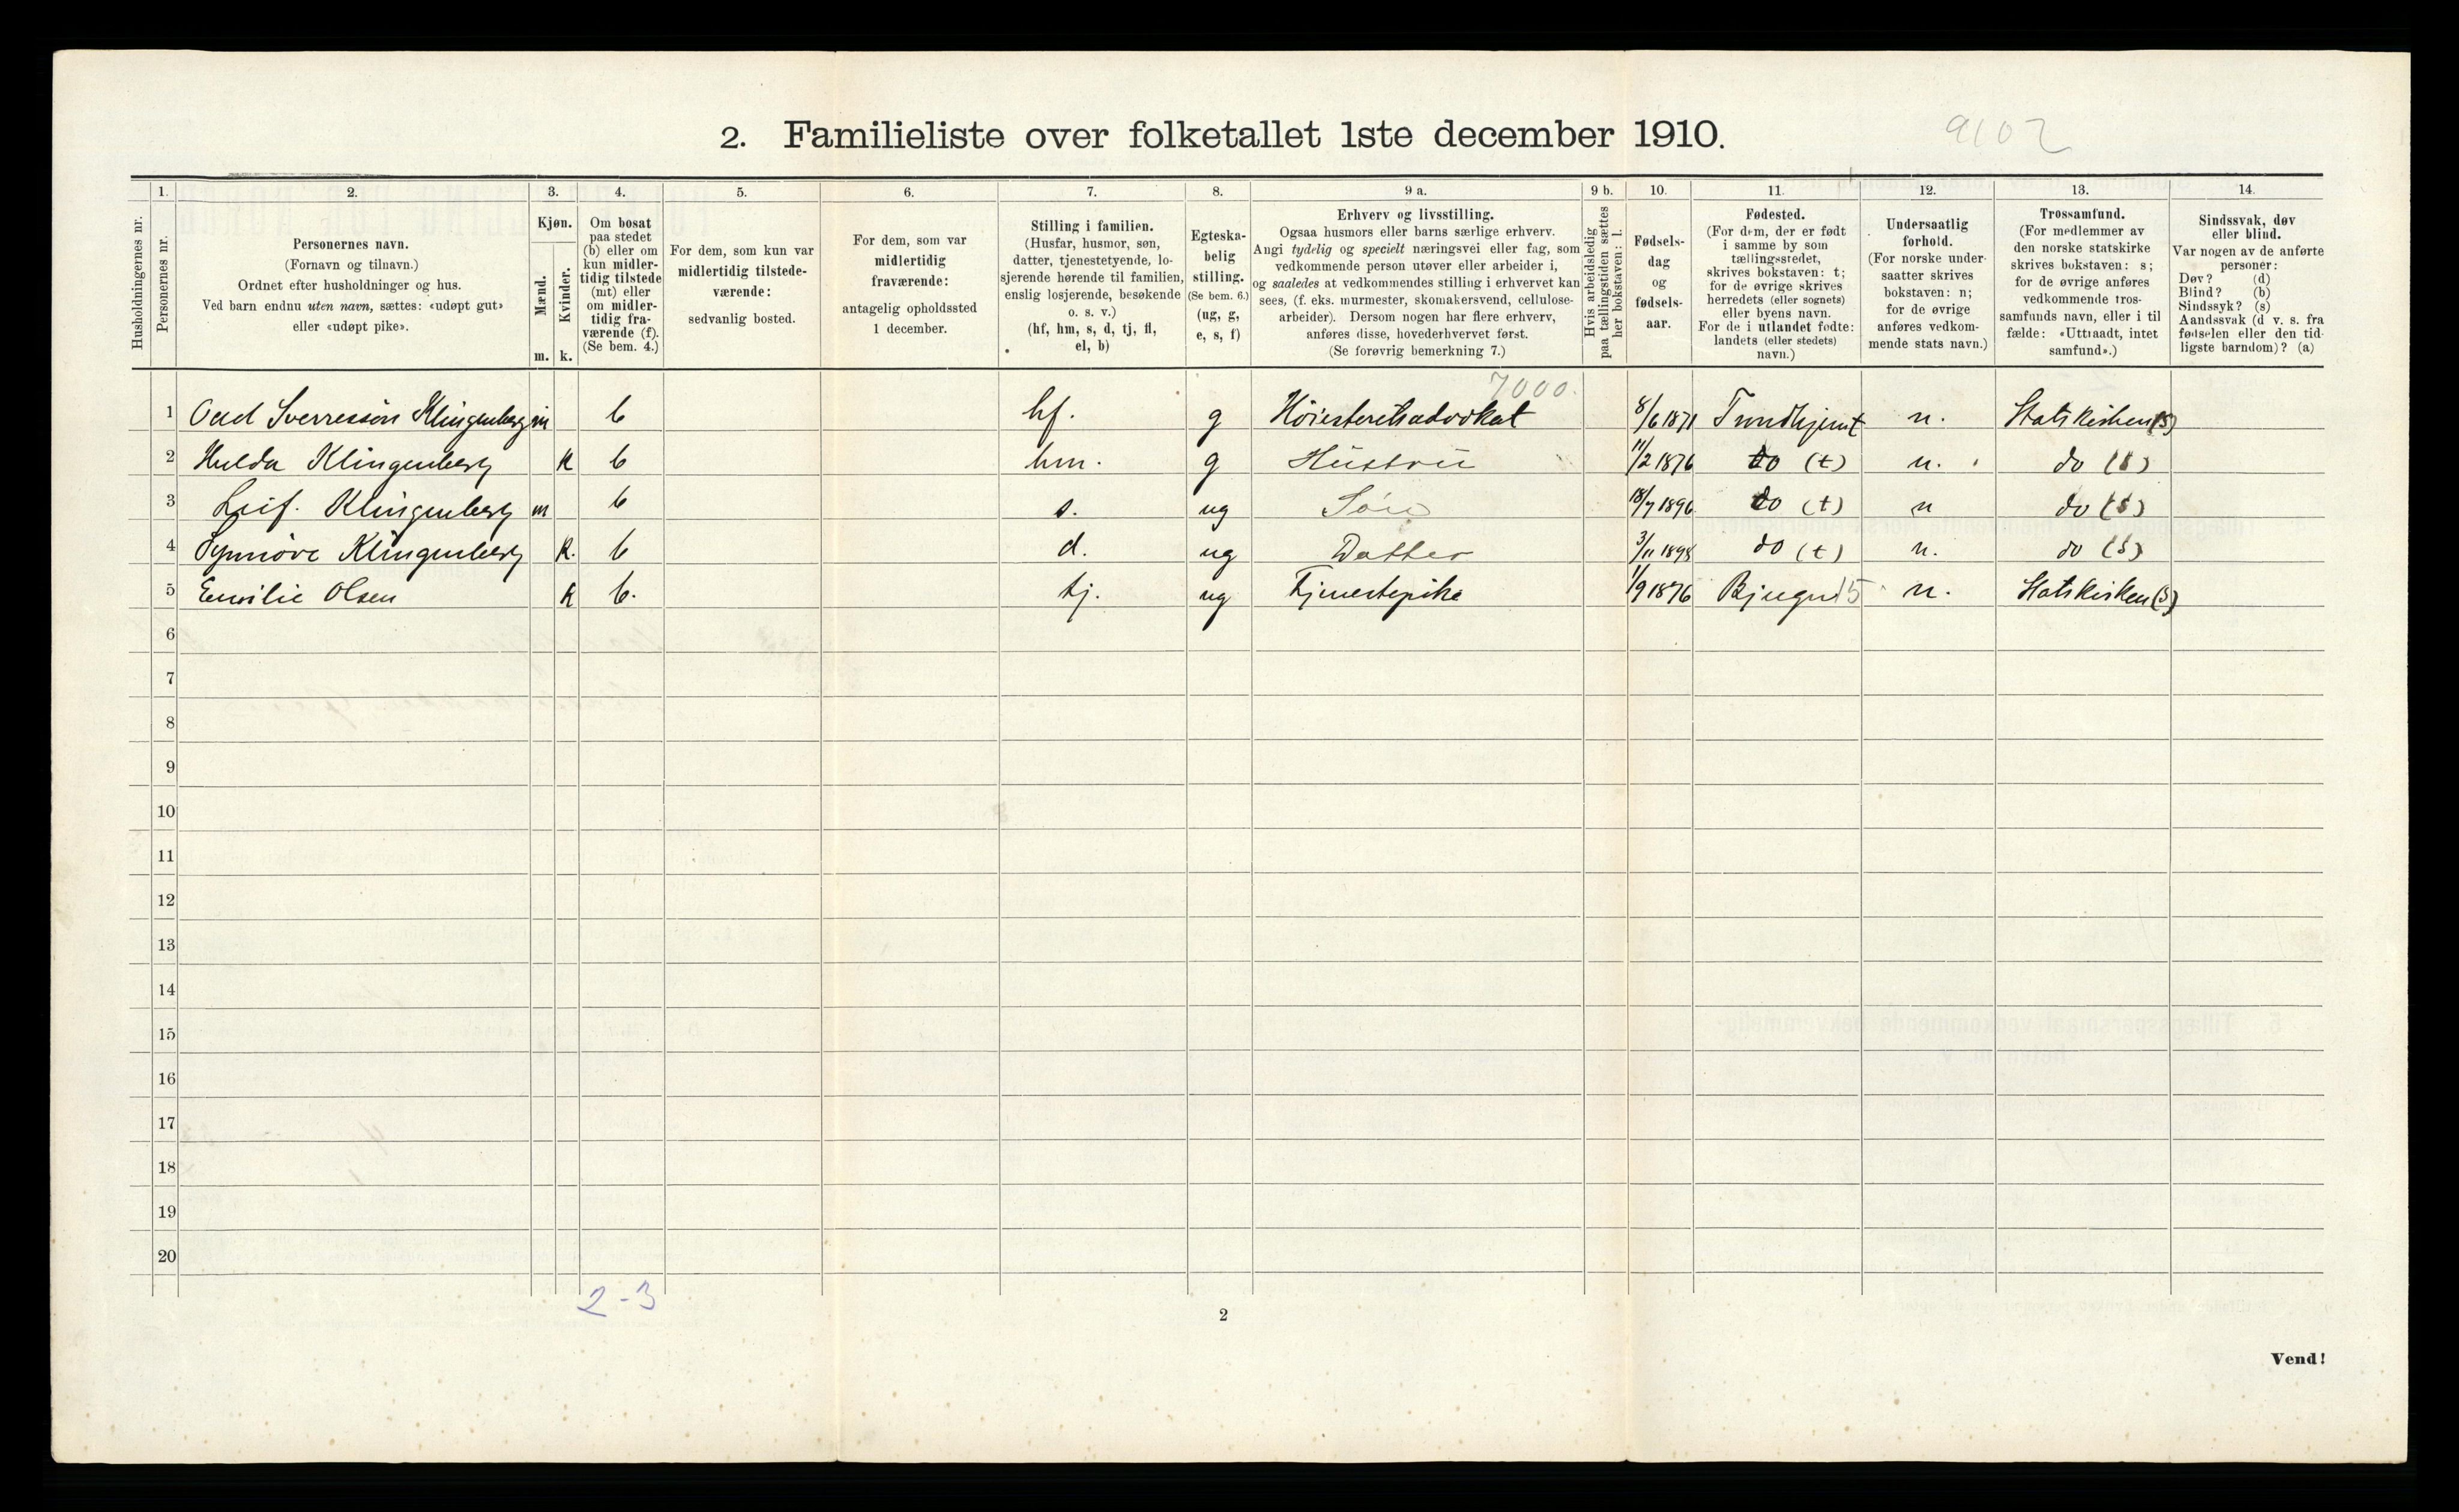 2. Familieliste over folketallet 1ste december 1910.
9102
Husholdningernes nr.
1.
Personernes nr.
2.
Personernes navn.
(Fornavn og tilnavn.)
Ordnet efter husholdninger og hus.
Ved barn endnu uten navn, sættes: «udøpt gut»
eller «udøpt pike».
3.
Kjøn.
Mænd.
m.
Kvinder.
k.
4.
Om bosat
paa stedet
(b) eller om
kun midler-
tidig tilstede
(mt) eller
om midler-
tidig fra-
værende (f).
(Se bem. 4.)
5.
For dem, som kun var
midlertidig tilstede-
værende:
sedvanlig bosted.
6.
For dem, som var
midlertidig
fraværende:
antagelig opholdssted
1 december.
7.
Stilling i familien.
(Husfar, husmor, søn,
datter, tjenestetyende, lo-
sjerende hørende til familien,
enslig losjerende, besøkende
o. s. v.)
(hf, hm, s, d, tj, fl,
el, b)
8.
Egteska-
belig
stilling.
(Se bem. 6.)
(ug, g,
e, s, f)
9 a.
Erhverv og livsstilling.
Ogsaa husmors eller barns særlige erhverv.
Angi tydelig og specielt næringsvei eller fag, som
vedkommende person utøver eller arbeider i,
og saaledes at vedkommendes stilling i erhvervet kan
sees, (f. eks. murmester, skomakersvend, cellulose-
arbeider). Dersom nogen har flere erhverv,
anføres disse, hovederhvervet først.
(Se forøvrig bemerkning 7.)
9 b.
Hvis arbeidsledig
paa tællingstiden sættes
her bokstaven: l.
10.
Fødsels-
dag
og
fødsels-
aar.
11.
Fødested.
(For dem, der er født
i samme by som
tællingsstedet,
skrives bokstaven: t;
for de øvrige skrives
herredets (eller sognets)
eller byens navn.
For de i utlandet fødte:
landets (eller stedets)
navn.)
12.
Undersaatlig
forhold.
(For norske under-
saatter skrives
bokstaven: n;
for de øvrige
anføres vedkom-
mende stats navn.)
13.
Trossamfund.
(For medlemmer av
den norske statskirke
skrives bokstaven: s;
for de øvrige anføres
vedkommende tros-
samfunds navn, eller i til
fælde: «Uttraadt, intet
samfund».)
14.
Sindssvak, døv
eller blind.
Var nogen av de anførte
personer:
Døv? (d)
Blind? (b)
Sindssyk? (s)
Aandssvak (d v. s. fra
fødselen eller den tid-
ligste barndom)? (a)
7000.
1 Odd Sverressøn Klingenberg m b hf. g Höiesteretsadvokat 8/6 1871 Trondhjem t n. Statskirken (s)
2 Hulda Klingenberg k b hm. g Hustru 11/2 1876 do (t) n. do (s)
3 Leif. Klingenberg m b s. ug Søn 18/7 1896 do (t) n do (s)
4 Synnöve Klingenberg k. b d. ug Datter 3/11 1898 do (t) n. do (s)
5 Emilie Olsen k b. tj. ug Tjenestepike 1/9 1876 Bjugn 15 n. Statskirken (s)
6
7
8
9
10
11
12
13
14
15
16
17
18
19
20
2-3
2
Vend!